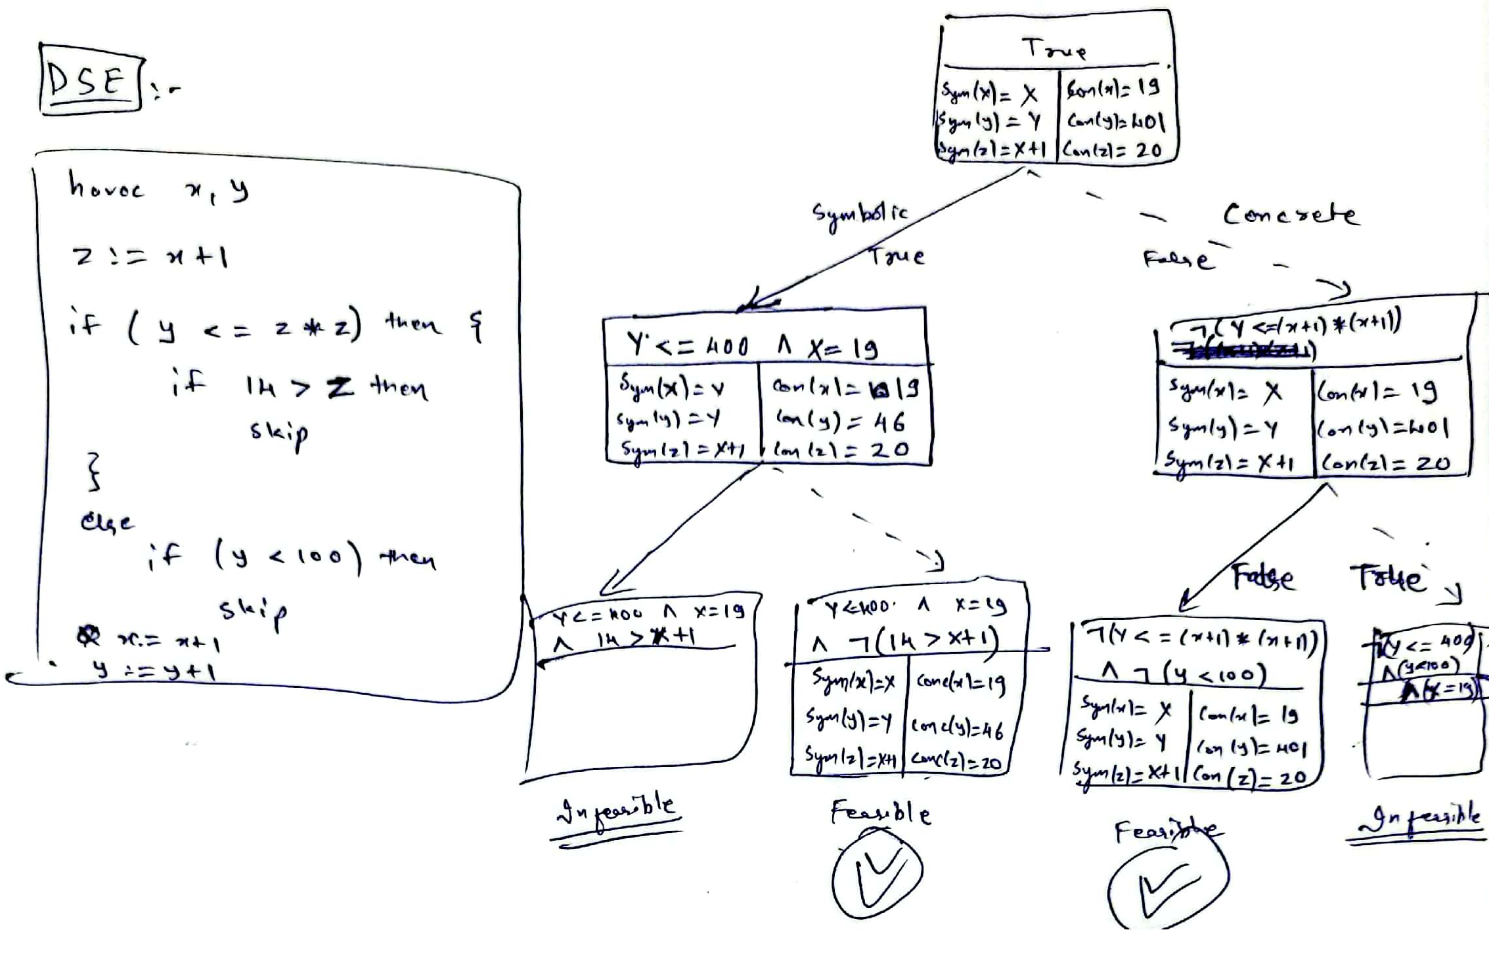 DSE :-
havoc x, y
z := x+1
if ( y <= z * z) then {
if 14 > z then
skip
}
else
if (y < 100) then
skip
x := x+1
y := y+1
True
Sym(x)= X Con(x)= 19
Sym(y) = Y Con(y)= 401
Sym(z)=X+1 Con(z)= 20
Symbolic
True
Concrete
False
Y <= 400 ∧ X= 19
Sym(x)= Y Con(x)= 19
Sym(y)= Y Con(y)= 46
Sym(z) = X+1 Con(z)= 20
¬(Y <=(x+1)*(x+1))
Sym(x)= X Con(x)= 19
Sym(y)=Y Con(y)=401
Sym(z)= X+1 Con(z)= 20
False True
Y<=400 ∧ X=19
∧ 14 > X+1
Infeasible
Y<=400 ∧ X=19
∧ ¬(14 > X+1)
Sym(x)=X Conc(x)=19
Sym(y)=Y Conc(y)=46
Sym(z)=X+1 Conc(z)=20
Feasible
¬(Y <= (x+1) * (x+1))
∧ ¬ (Y <100)
Sym(x)= X Con(x)= 19
Sym(y)= Y Con(y)= 401
Sym(z)= X+1 Con(z)= 20
Feasible
¬(Y <= 400)
∧(Y<100)
∧(X=19)
Infeasible